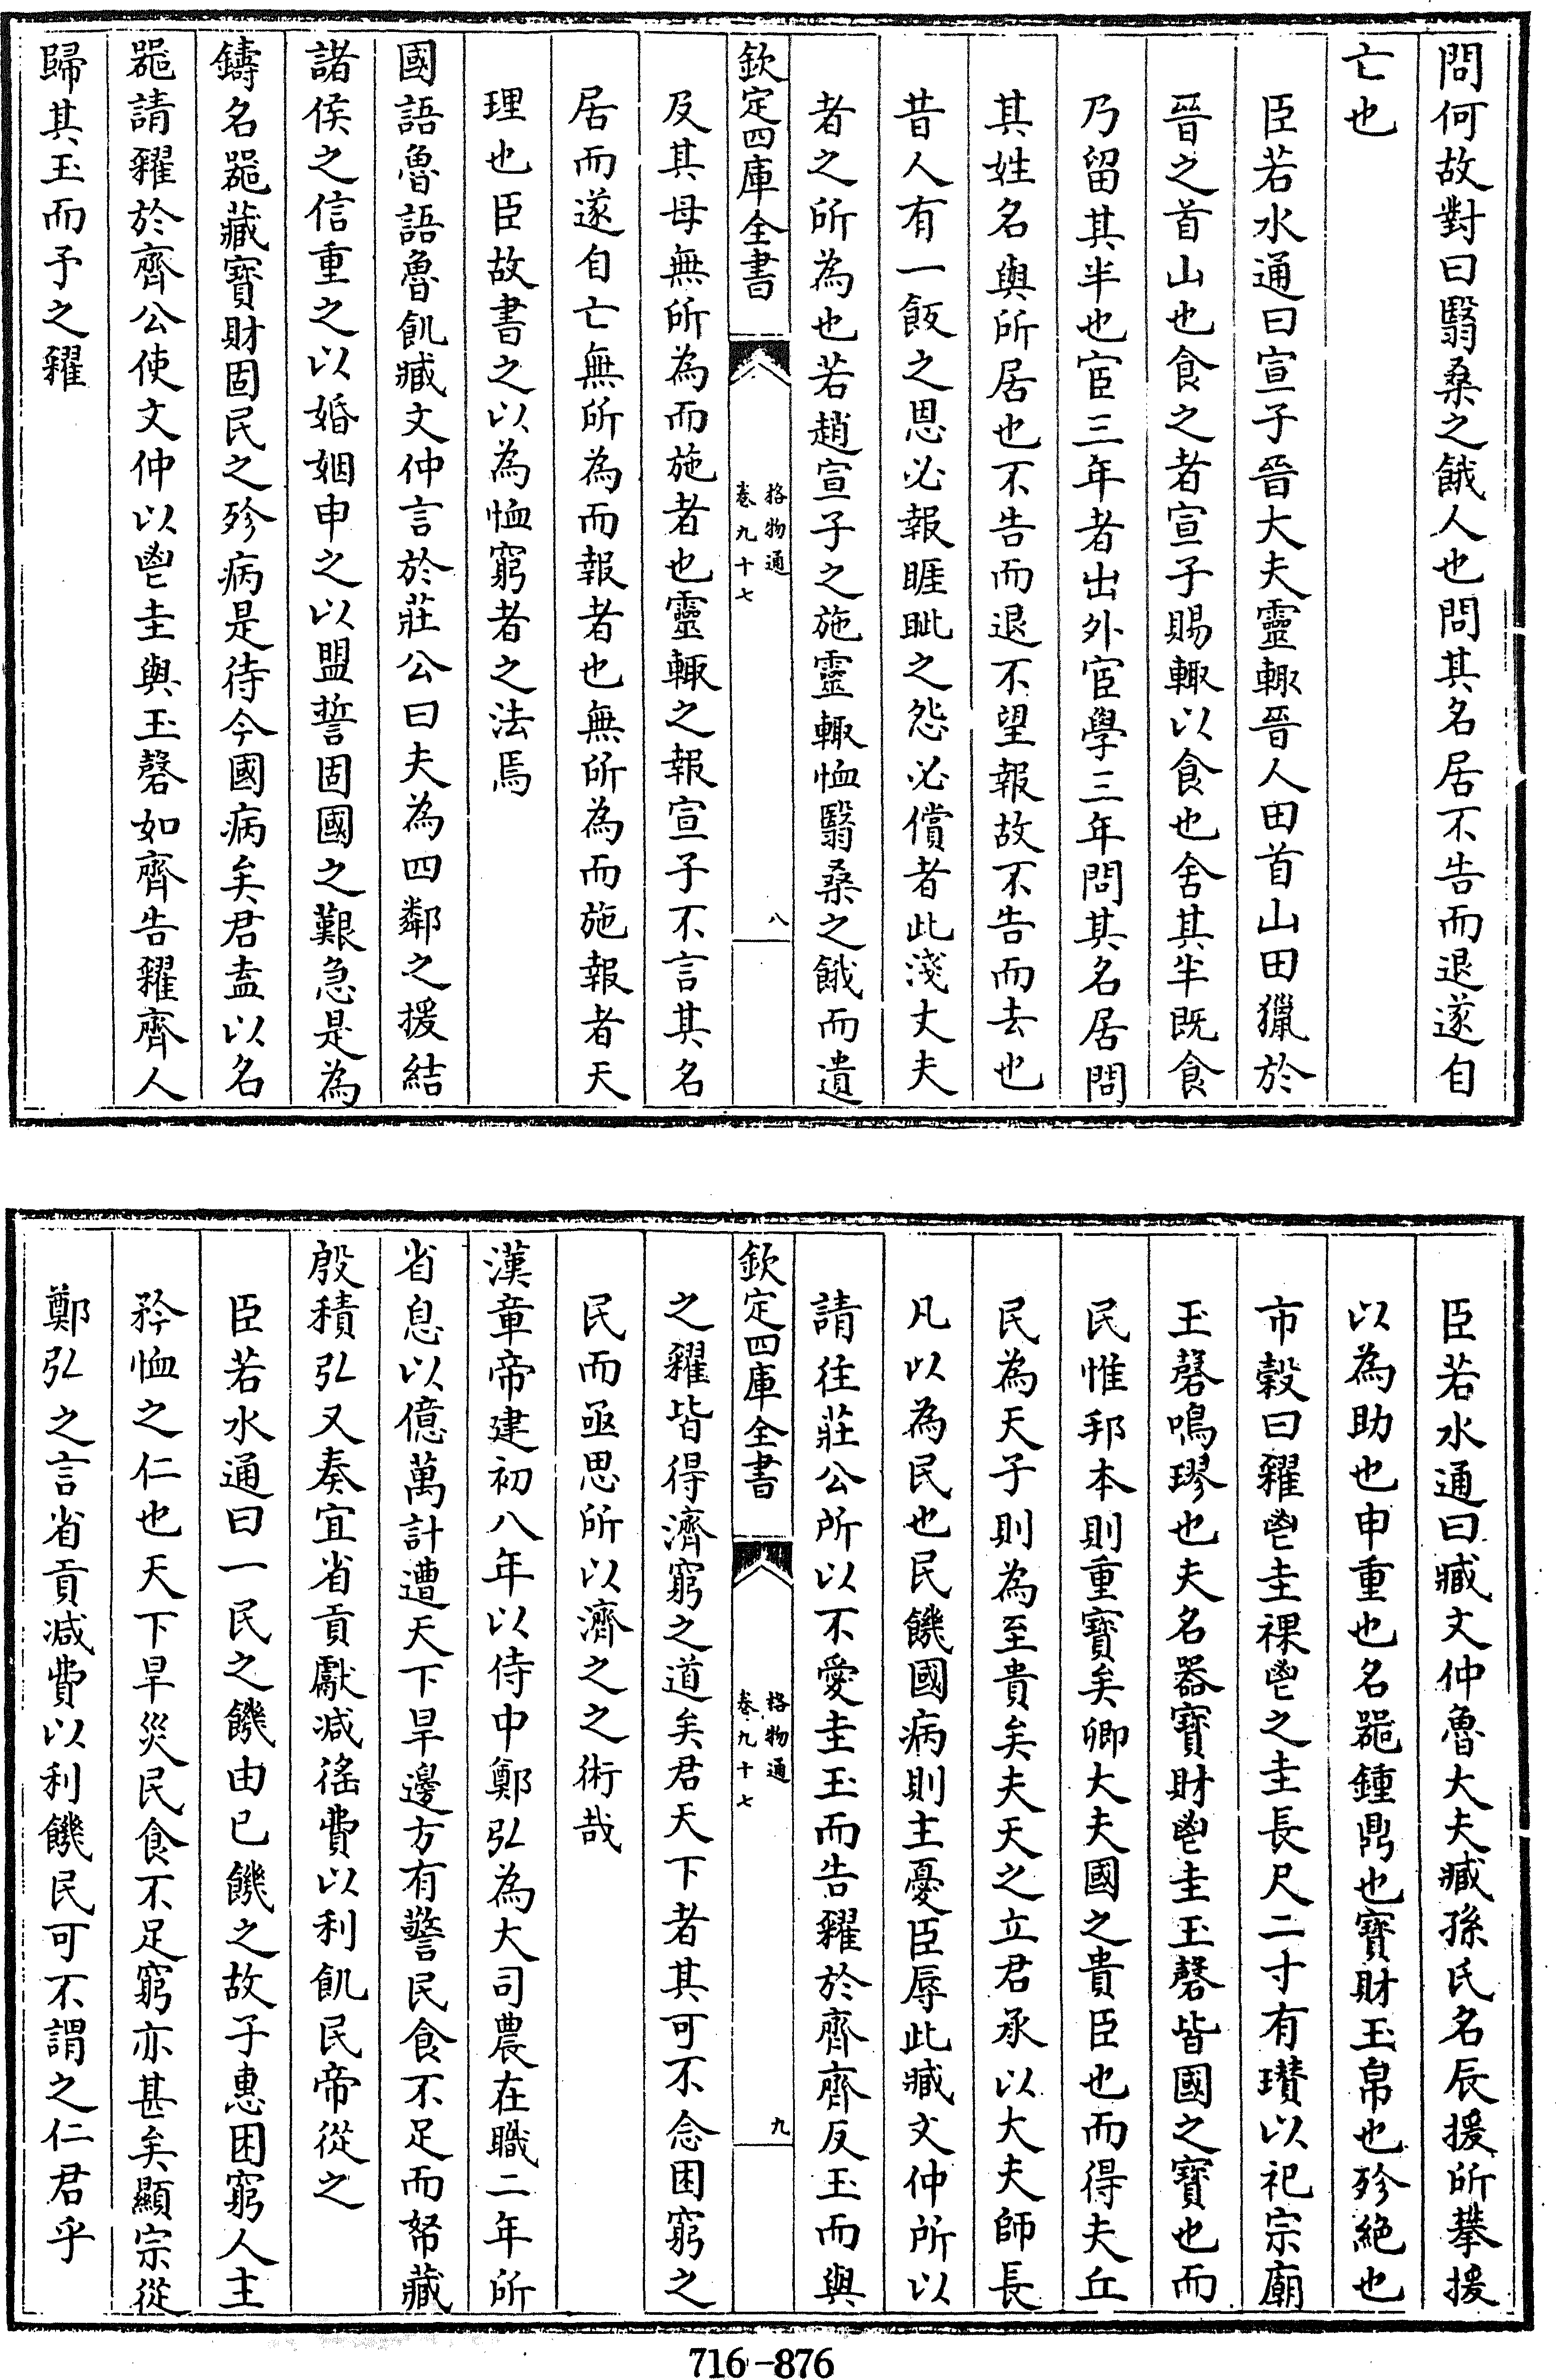 問何故對曰翳桑之餓人也問其名居不告而退遂自
亡也
臣若水通曰宣子晉大夫靈輒晉人田首山田獵於
晉之首山也食之者宣子賜輒以食也舍其半既食
乃留其半也宦三年者出外宦學三年問其名居問
其姓名與所居也不告而退不望報故不告而去也
昔人有一飯之恩必報睚眦之怨必償者此淺丈夫
者之所為也若趙宣子之施靈輒恤翳桑之餓而遺
欽定四庫全書
格物通
卷九十七
八
及其母無所為而施者也靈輒之報宣子不言其名
居而遂自亡無所為而報者也無所為而施報者天
理也臣故書之以為恤窮者之法焉
國語魯語魯飢臧文仲言於莊公曰夫為四鄰之援結
諸侯之信重之以婚姻申之以盟誓固國之艱急是為
鑄名噐藏寶財固民之殄病是待今國病矣君盍以名
噐請糴於齊公使文仲以鬯圭與玉磬如齊告糴齊人
歸其玉而予之糴
臣若水通曰臧文仲魯大夫臧孫氏名辰援所攀援
以為助也申重也名噐鍾鼎也寶財玉帛也殄絕也
市穀曰糴鬯圭祼鬯之圭長尺二寸有瓚以祀宗廟
玉磬鳴璆也夫名器寶財鬯圭玉磬皆國之寶也而
民惟邦本則重寶矣卿大夫國之貴臣也而得夫丘
民為天子則為至貴矣夫天之立君承以大夫師長
凡以為民也民饑國病則主憂臣辱此臧文仲所以
請往莊公所以不愛圭玉而告糴於齊齊反玉而與
欽定四庫全書
格物通
卷九十七
九
之糴皆得濟窮之道矣君天下者其可不念困窮之
民而亟思所以濟之之術哉
漢章帝建初八年以侍中鄭弘為大司農在職二年所
省息以億萬計遭天下旱邊方有警民食不足而帑藏
殷積弘又奏宜省貢獻减徭費以利飢民帝從之
臣若水通曰一民之饑由已饑之故子惠困窮人主
矜恤之仁也天下旱災民食不足窮亦甚矣顯宗從
鄭弘之言省貢减費以利饑民可不謂之仁君乎
716-876